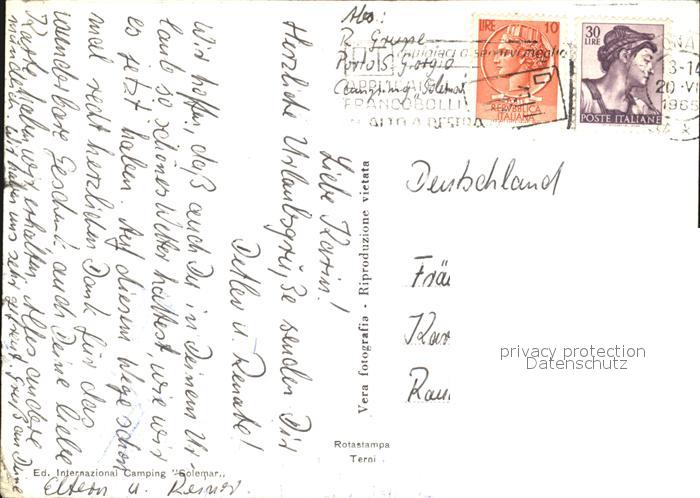 Abs:
R. Gruppe
Porto S. Giorgio
Camping Solemar
LIRE 10
REPVBBLICA
ITALIANA
30
LIRE
POSTE ITALIANE
FRANCOBOLLI
IN ALTO A DESTRA
Liebe Karin!
Herzliche Urlaubsgrüße senden Dir
Detlev u. Renate!
Wir hoffen, daß auch Du in Deinem Ur-
laub so schönes Wetter hattest, wie wir
es jetzt haben. Auf diesem Wege schon
mal recht herzlichen Dank für das
wunderbare Geschenk auch Deine liebe
Karte haben wir erhalten. Alles andere
mündlich. Wir haben uns sehr gefreut. Gruß an Deine
Eltern u. Reiner.
Vera fotografia - Riproduzione vietata
Deutschland
Frä
Kar
Rau
privacy protection
Datenschutz
Rotastampa
Terni
Ed. Internazional Camping "Solemar"